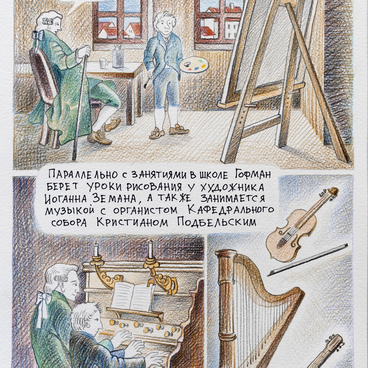 Параллельно с занятиями в школе Гофман
берет уроки рисования у художника
Иоганна Земана, а также занимается
музыкой с органистом Кафедрального
собора Кристианом Подбельским